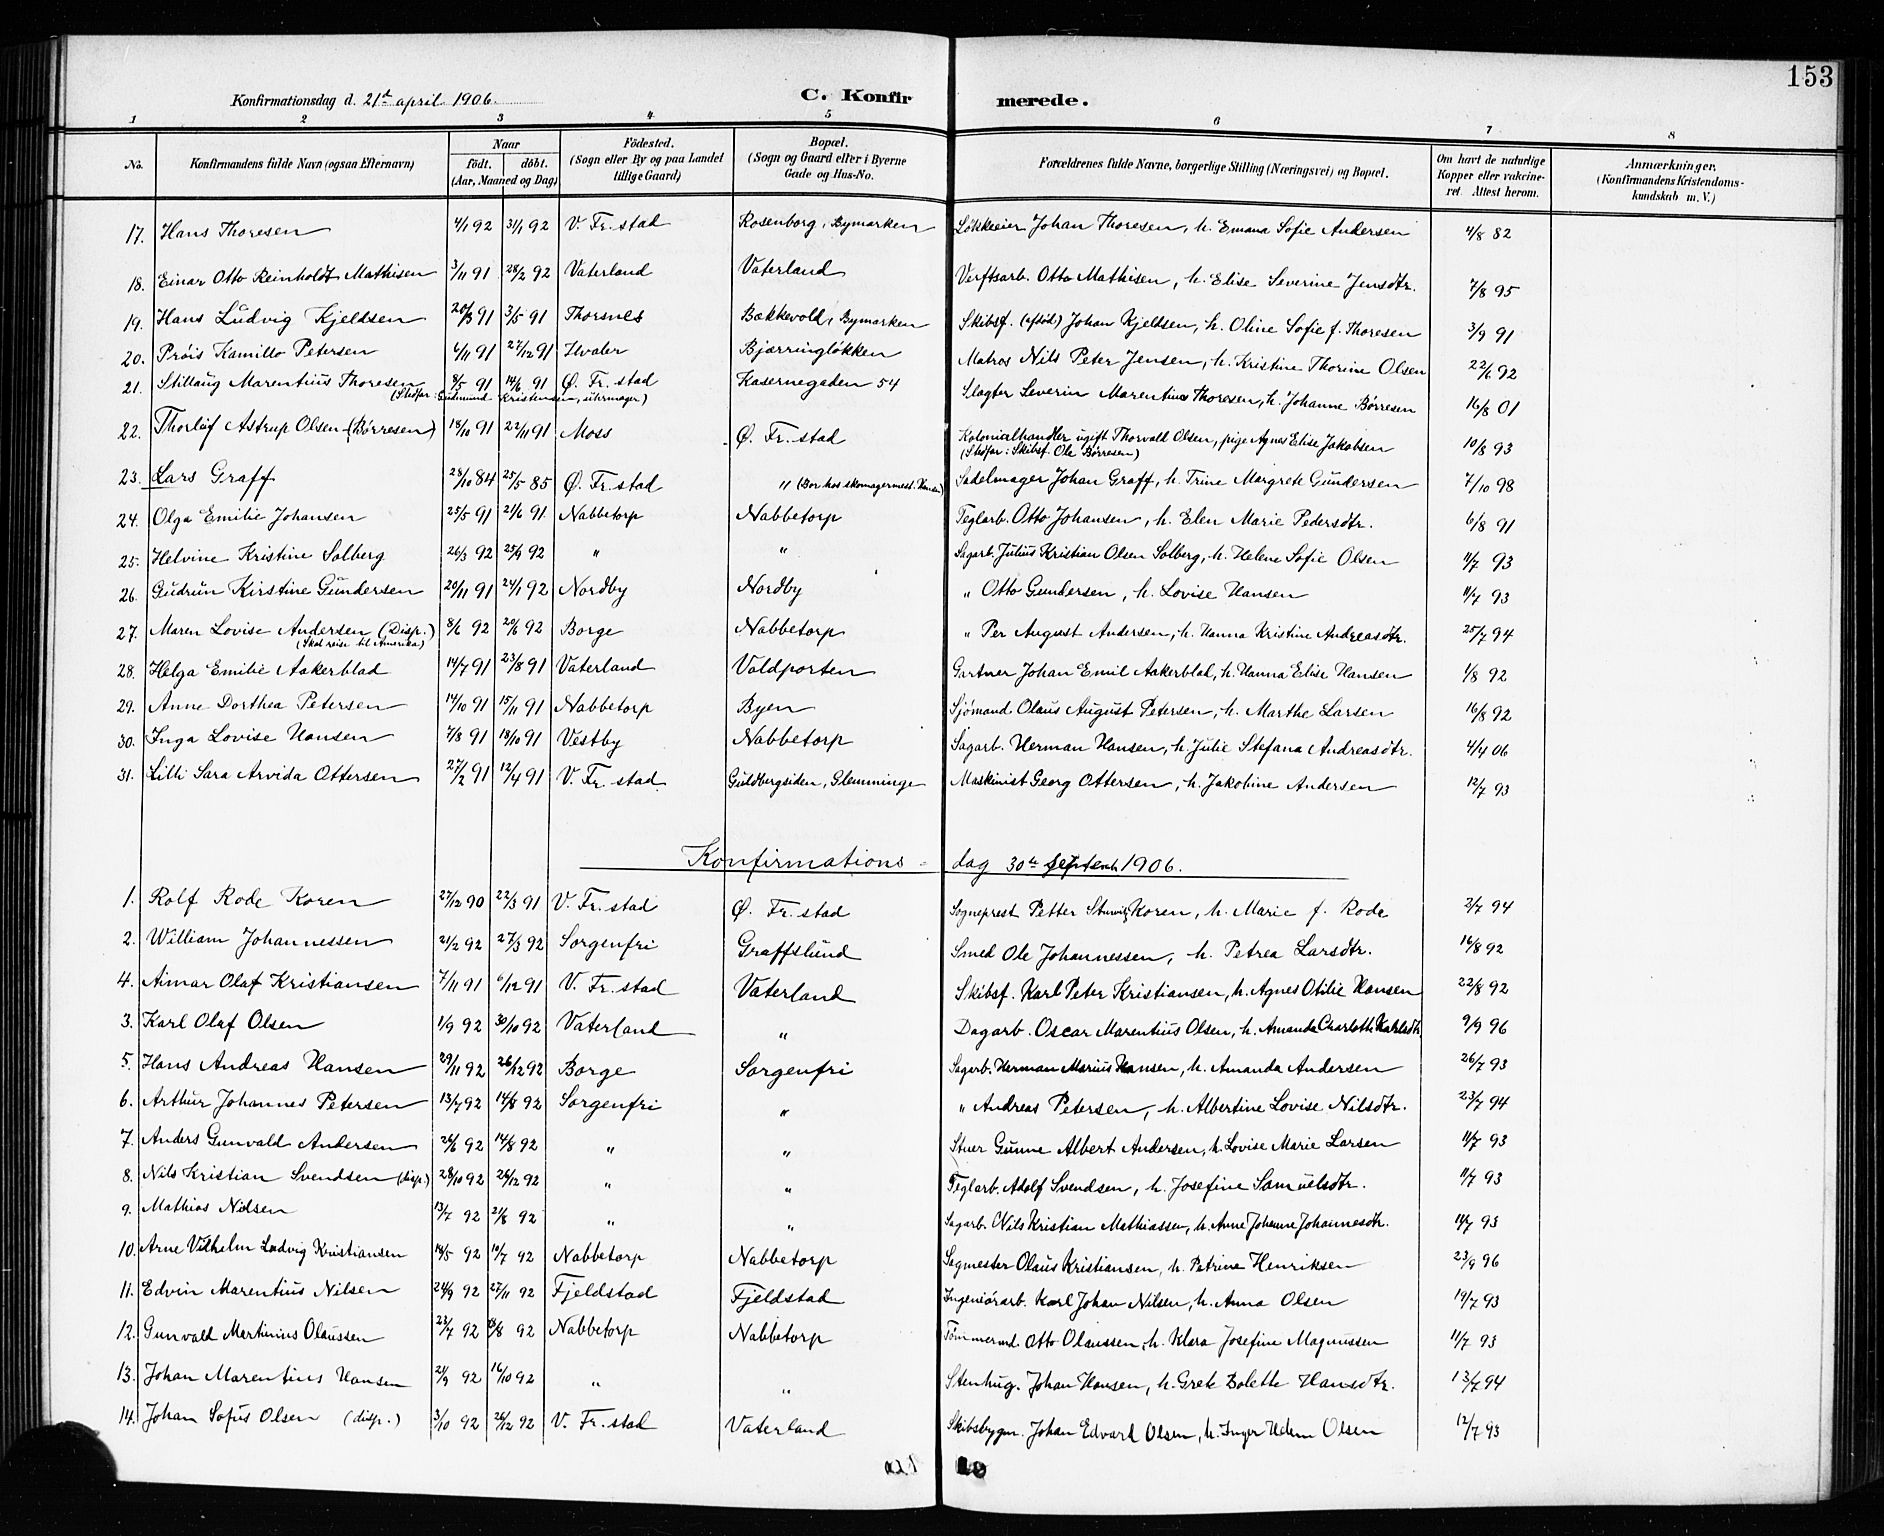 153
Konfirmationsdag d. 21de april 1906. C. Konfirmerede.
1 2 3 4 5 6 7 8
No. Konfirmandens fulde Navn (ogsaa Efternavn) Naar født. døbt. (Aar, Maaned og Dag) Fødested. (Sogn eller By og paa Landet tillige Gaard) Bopæl. (Sogn og Gaard eller i Byerne Gade og Hus-No. Forældrenes fulde Navne, borgerlige Stilling (Næringsvei) og Bopæl. Om havt de naturlige Kopper eller vakcineret. Attest herom. Anmærkninger, (Konfirmandens Kristendomskundskab m. V.)
17. Hans Thoresen 4/1 92 31/1 92 V. Fr. stad Rosenborg, Bymarken Løkkeeier Johan Thoresen, h. Emana Sofie Andersen 4/8 82
18. Einar Otto Reinholdt Mathisen 3/11 91 28/2 92 Vaterland Vaterland Verftsarb. Otto Mathisen, h. Elise Severine Jensdtr. 7/8 95
19. Hans Ludvig Kjeldsen 20/3 91 3/5 91 Thorsnes Bækkevold, Bymarken Skibsf. (afdød) Johan Kjeldsen, h. Oline Sofie f. Thoresen 3/9 91
20. Prøis Kamillo Petersen 6/11 91 27/12 91 Hvaler Bjærringløkken Matros Nils Peter Jensen, h. Kristine Thorine Olsen 22/6 92
21. Stillaug Marentius Thoresen 8/5 91 14/6 91 Ø. Fr. stad Kasernegaden 54 Slagter Severin Marentius Thoresen, h. Johanne Børresen 16/8 01
(Stedfar: Gudmund Kristensen, uhrmager.)
22. Thorleif Astrup Olsen (Børresen) 18/10 91 22/11 91 Moss Ø. Fr. stad Kolonialhandler ugift Thorvald Olsen, pige Agnes Elise Jakobsen 10/8 93
(Stedfar: Skibsf. Ole Børresen)
23. Lars Graff 28/10 84 25/5 85 Ø. Fr. stad " (Bor hos skomagermest. Hansen) Sadelmager Johan Graff, h. Trine Margrete Gundersen 7/10 98
24. Olga Emilie Johansen 25/5 91 21/6 91 Nabbetorp Nabbetorp Teglarb. Otto Johansen, h. Elen Marie Pedersdtr. 6/8 91
25. Helvine Kristine Solberg 26/3 92 92 " " Sagarb. Julius Kristian Olsen Solberg, h. Helene Sofie Olsen 11/7 93
26. Gudrun Kirstine Gundersen 20/11 91 24/1 92 Nordby Nordby " Otto Gundersen, h. Lovise Hansen 11/7 93
27. Maren Lovise Andersen (Disp.) 8/6 92 20/6 92 Borge Nabbetorp " Per August Andersen, h. Hanna Kristine Andreasdtr. 25/7 94
(Skal reise til Amerika)
28. Helga Emilie Aakerblad 14/7 91 23/8 91 Vaterland Voldporten Gartner Johan Emil Aakerblad, h. Hanna Elise Hansen 1/8 92
29. Anne Dorthea Petersen 14/10 91 15/11 91 Nabbetorp Byen Sjømand Olaus August Petersen, h. Marthe Larsen 16/8 92
30. Inga Lovise Hansen 7/8 91 18/10 91 Vestby Nabbetorp Sagarb. Herman Hansen, h. Julie Stefana Andreasdtr. 4/4 06
31. Lilli Sara Arvida Ottersen 27/2 91 12/4 91 V. Fr. stad Guldbergsiden, Glemminge Maskinist Georg Ottersen, h. Jakobine Andersen 12/7 93
Konfirmations-dag 30te septemb 1906.
1. Rolf Rode Koren 27/12 90 22/3 91 V. Fr. stad Ø. Fr. stad Sogneprest Petter Koren, h. Marie f. Rode 2/7 94
2. William Johannessen 21/2 92 27/3 92 Sorgenfri Graffslund Smed Ole Johannessen, h. Petrea Larsdtr. 16/8 92
4. Aimar Olaf Kristiansen 7/11 91 6/12 91 V. Fr. stad Vaterland Skibsf. Karl Peter Kristiansen, h. Agnes Otilie Hansen 22/8 92
3. Karl Olaf Olsen 1/9 92 30/10 92 Vaterland " Dagarb. Oscar Marentius Olsen, h. Amanda Charlotte Karlsdtr. 9/9 96
5. Hans Andreas Hansen 29/11 92 26/12 92 Borge Sorgenfri Sagarb. Herman Marius Hansen, h. Amanda Andersen 26/7 93
6. Arthur Johannes Petersen 13/7 92 14/8 92 Sorgenfri " " Andreas Petersen, h. Albertine Lovise Nilsdtr. 23/7 94
7. Anders Gunvald Andersen 26/6 92 14/8 92 " " Stuer Gunne Albert Andersen, h. Lovise Marie Larsen 11/7 93
8. Nils Kristian Svendsen (disp.) 28/10 92 26/12 92 " " Teglarb. Adolf Svendsen, h. Josefine Samuelsdtr. 11/7 93
9. Mathias Nilsen 13/7 92 21/8 92 " " Sagarb. Nils Kristian Mathiassen, h. Anne Johanne Johannesdtr. 11/7 93
10. Arne Vilhelm Ludvig Kristiansen 14/5 92 10/7 92 Nabbetorp Nabbetorp Sagmester Olaus Kristiansen, h. Petrine Henriksen 23/9 96
11. Edvin Marentius Nilsen 24/9 92 27/11 92 Fjeldstad Fjeldstad Ingeniørarb. Karl Johan Nilsen, h. Anna Olsen 19/7 93
12. Gunvald Martinius Olaussen 23/7 92 92 Nabbetorp Nabbetorp Tømmermd. Otto Olaussen, h. Klara Josefine Magnussen 11/7 93
13. Johan Marentius Hansen 21/9 92 16/10 92 " " Stenhug. Johan Hansen, h. Grete Bolette Hansdtr. 13/7 94
14. Johan Sofus Olsen (disp.) 3/10 92 26/12 92 V. Fr. stad Vaterland Skibsbygm. Johan Edvard Olsen, h. Inger Olsen 12/7 93